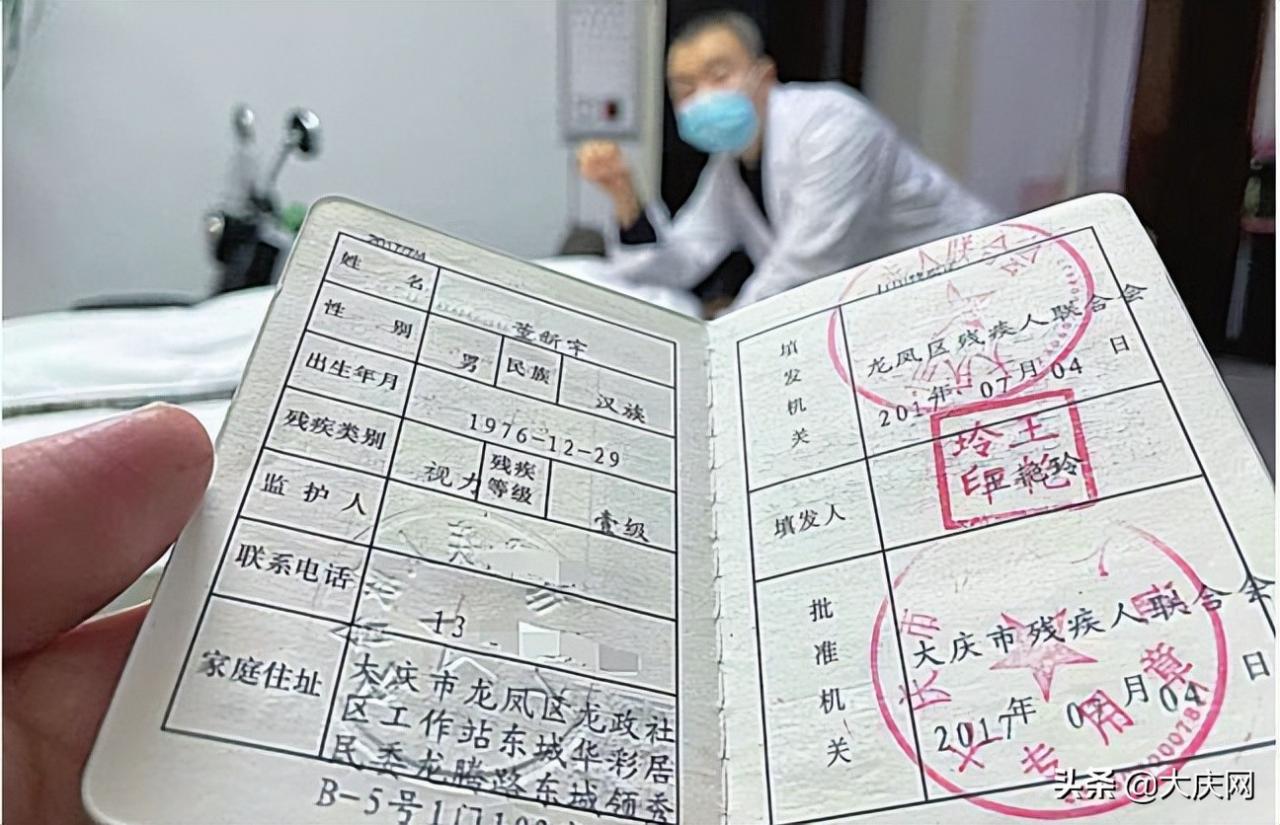 姓名 董新宇
性别 男 民族 汉族
出生年月 1976-12-29
残疾类别 视力 残疾等级 壹级
监护人
联系电话 13
家庭住址 大庆市龙凤区龙政社
区工作站东城华彩居
民委龙腾路东城领秀
B-5号1门
填发机关 龙凤区残疾人联合会
2017年 07月 04 日
填发人 王艳玲
王艳玲印
批准机关 大庆市残疾人联合会
2017年 07月 04 日
专用章
头条 @大庆网